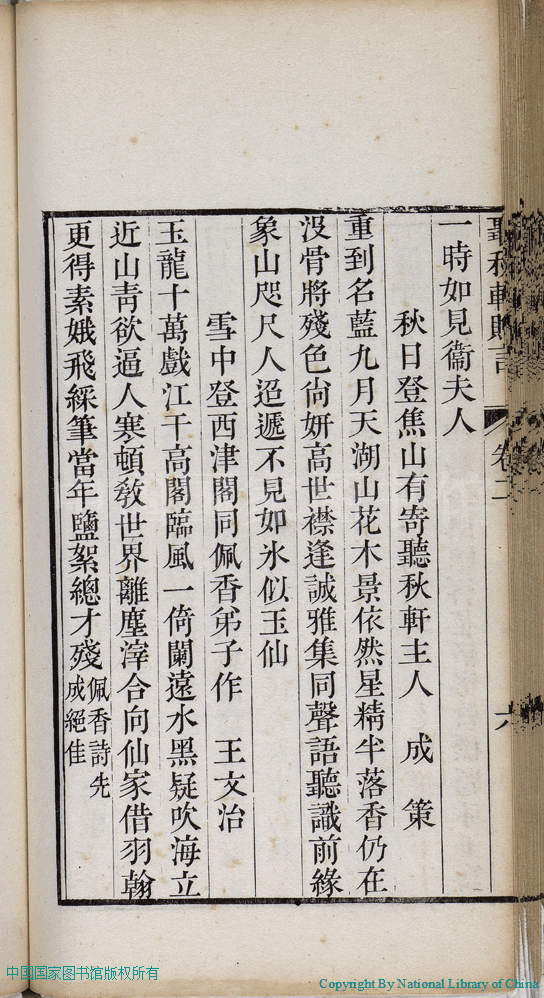 聽秋軒贈言 卷二 六
一時如見衞夫人
秋日登焦山有寄聽秋軒主人 成策
重到名藍九月天湖山花木景依然星精半落香仍在
沒骨將殘色尙妍高世襟逢誠雅集同聲語聽識前緣
象山咫尺人迢遞不見如氷似玉仙
雪中登西津閣同佩香弟子作 王文治
玉龍十萬戲江干高閣臨風一倚闌遠水黑疑吹海立
近山靑欲逼人寒頓敎世界離塵滓合向仙家借羽翰
更得素娥飛綵筆當年鹽絮總才殘佩香詩先
成絕佳
中国国家图书馆版权所有
Copyright By National Library of China